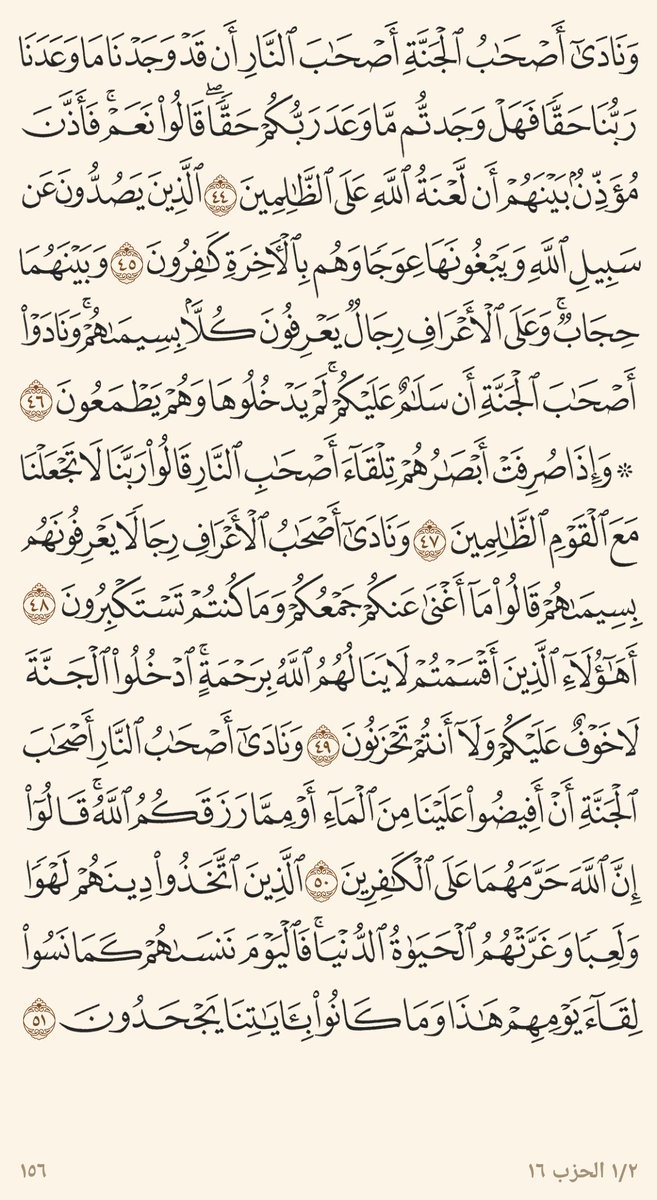 وَنَادَىٰٓ أَصْحَٰبُ ٱلْجَنَّةِ أَصْحَٰبَ ٱلنَّارِ أَن قَدْ وَجَدْنَا مَا وَعَدَنَا
رَبُّنَا حَقًّا فَهَلْ وَجَدتُّم مَّا وَعَدَ رَبُّكُمْ حَقًّا ۖ قَالُوا۟ نَعَمْ ۚ فَأَذَّنَ
مُؤَذِّنٌۢ بَيْنَهُمْ أَن لَّعْنَةُ ٱللَّهِ عَلَى ٱلظَّٰلِمِينَ ٤٤ ٱلَّذِينَ يَصُدُّونَ عَن
سَبِيلِ ٱللَّهِ وَيَبْغُونَهَا عِوَجًا وَهُم بِٱلْـَٔاخِرَةِ كَٰفِرُونَ ٤٥ وَبَيْنَهُمَا
حِجَابٌ ۚ وَعَلَى ٱلْأَعْرَافِ رِجَالٌ يَعْرِفُونَ كُلًّۢا بِسِيمَىٰهُمْ ۚ وَنَادَوْا۟
أَصْحَٰبَ ٱلْجَنَّةِ أَن سَلَٰمٌ عَلَيْكُمْ ۚ لَمْ يَدْخُلُوهَا وَهُمْ يَطْمَعُونَ ٤٦
۞ وَإِذَا صُرِفَتْ أَبْصَٰرُهُمْ تِلْقَآءَ أَصْحَٰبِ ٱلنَّارِ قَالُوا۟ رَبَّنَا لَا تَجْعَلْنَا
مَعَ ٱلْقَوْمِ ٱلظَّٰلِمِينَ ٤٧ وَنَادَىٰٓ أَصْحَٰبُ ٱلْأَعْرَافِ رِجَالًا يَعْرِفُونَهُم
بِسِيمَىٰهُمْ قَالُوا۟ مَآ أَغْنَىٰ عَنكُمْ جَمْعُكُمْ وَمَا كُنتُمْ تَسْتَكْبِرُونَ ٤٨
أَهَٰٓؤُلَآءِ ٱلَّذِينَ أَقْسَمْتُمْ لَا يَنَالُهُمُ ٱللَّهُ بِرَحْمَةٍ ۚ ٱدْخُلُوا۟ ٱلْجَنَّةَ
لَا خَوْفٌ عَلَيْكُمْ وَلَآ أَنتُمْ تَحْزَنُونَ ٤٩ وَنَادَىٰٓ أَصْحَٰبُ ٱلنَّارِ أَصْحَٰبَ
ٱلْجَنَّةِ أَنْ أَفِيضُوا۟ عَلَيْنَا مِنَ ٱلْمَآءِ أَوْ مِمَّا رَزَقَكُمُ ٱللَّهُ ۚ قَالُوٓا۟
إِنَّ ٱللَّهَ حَرَّمَهُمَا عَلَى ٱلْكَٰفِرِينَ ٥٠ ٱلَّذِينَ ٱتَّخَذُوا۟ دِينَهُمْ لَهْوًا
وَلَعِبًا وَغَرَّتْهُمُ ٱلْحَيَوٰةُ ٱلدُّنْيَا ۚ فَٱلْيَوْمَ نَنسَىٰهُمْ كَمَا نَسُوا۟
لِقَآءَ يَوْمِهِمْ هَٰذَا وَمَا كَانُوا۟ بِـَٔايَٰتِنَا يَجْحَدُونَ ٥١
١/٢ الحزب ١٦
١٥٦